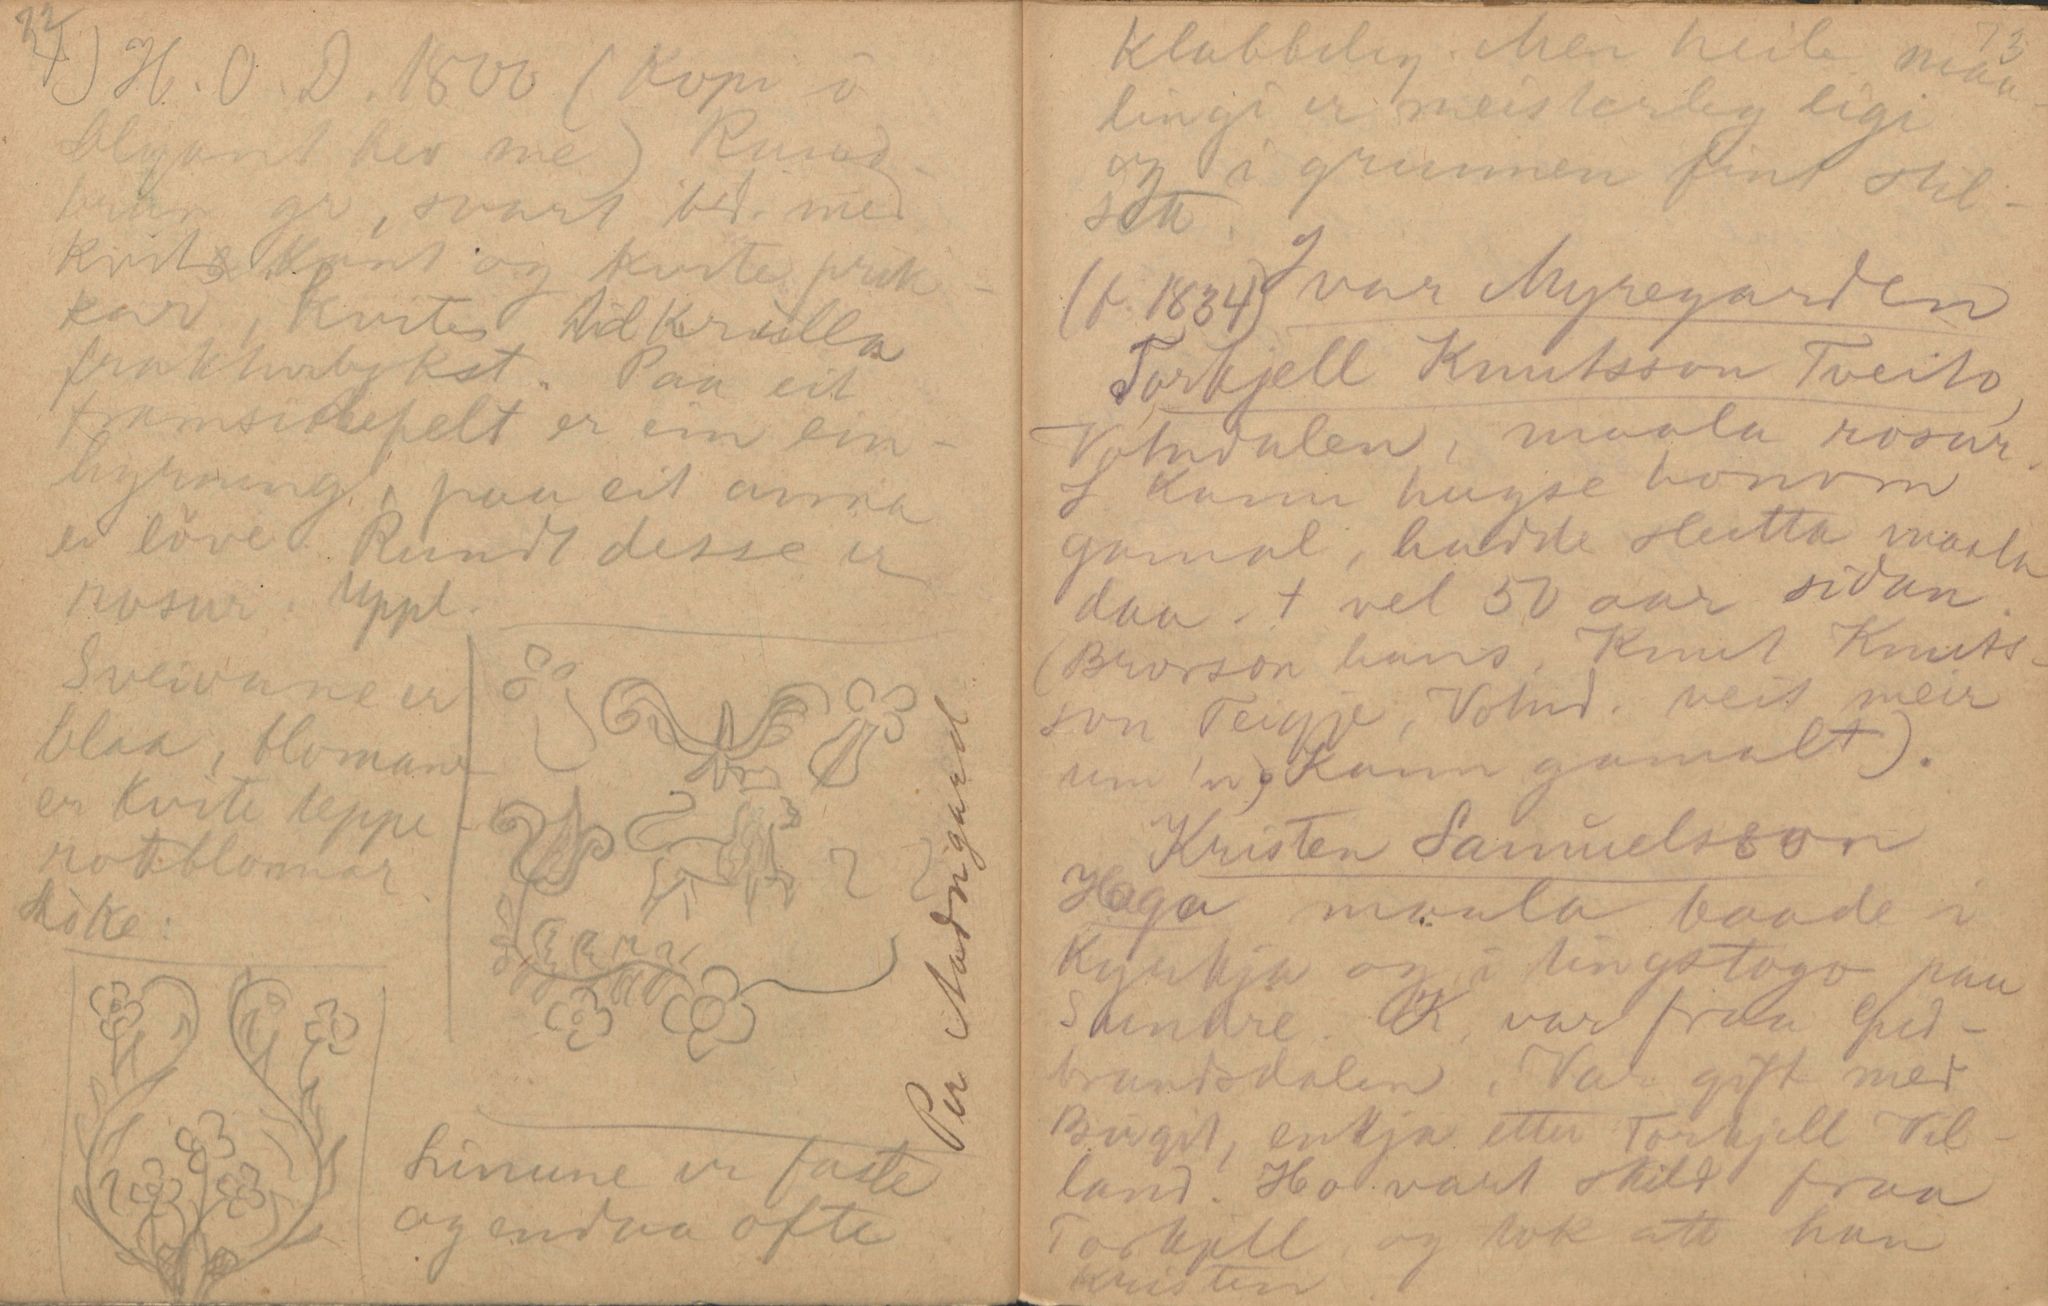 72
4) H. O. D. 1800 (Kopi i
blyant hev me) Raud-
brun gr, svart bd. med
kvit kant og kvite prik-
kar, kvite krulla
frakturbokst. Paa eit
framsidefelt er ein ein-
hyrning, paa eit anna
ei löve. Rundt desse er
rosur. Uppl.
Sveivane er
blaa, blomane
er kvite teppe-
rotblomar.
Loke:
Per Aadnigard
Linune er faste
og endaa ofte
73
klabbeleg. Men heile maa-
lingi er meisterleg ligi
og i grunnen fint stil-
sett.
Ivar Myregarden
(f. 1834)
Torkjell Knutsson Tveito,
Votndalen, maala rosur.
I. kann hugse honom
gamal, hadde slutta maala
daa. † vel 50 aar sidan.
(Brorson hans, Knut Knuts-
son Teigje, Votnd. veit meir
um 'n, kann gamalt).
Kristen Samuelsson
Haga maala baade i
Kyrkja og i tingstogo paa
Sundre. K. var fraa Gud-
brandsdalen. Var gift med
Birgit, enkja etter Torkjell Vil-
land. Ho vart skild fraa
Torkjell, og tok att han
Kristen